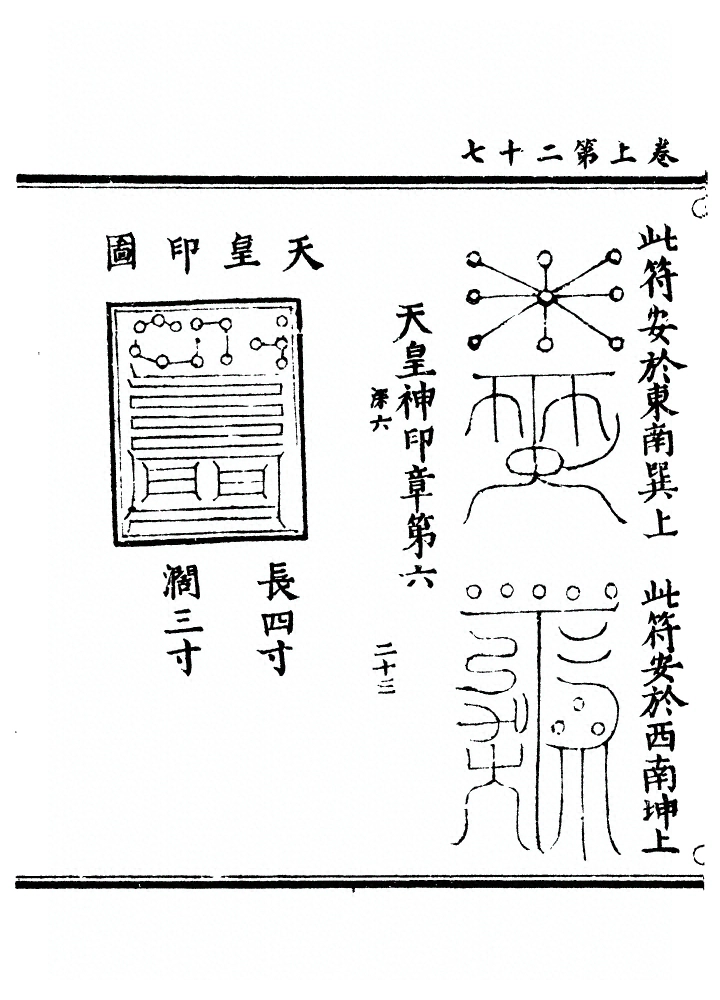 卷上第二十七
此符安於東南巽上
此符安於西南坤上
天皇神印章第六
深六
二十三
天皇印圖
長四寸
濶三寸